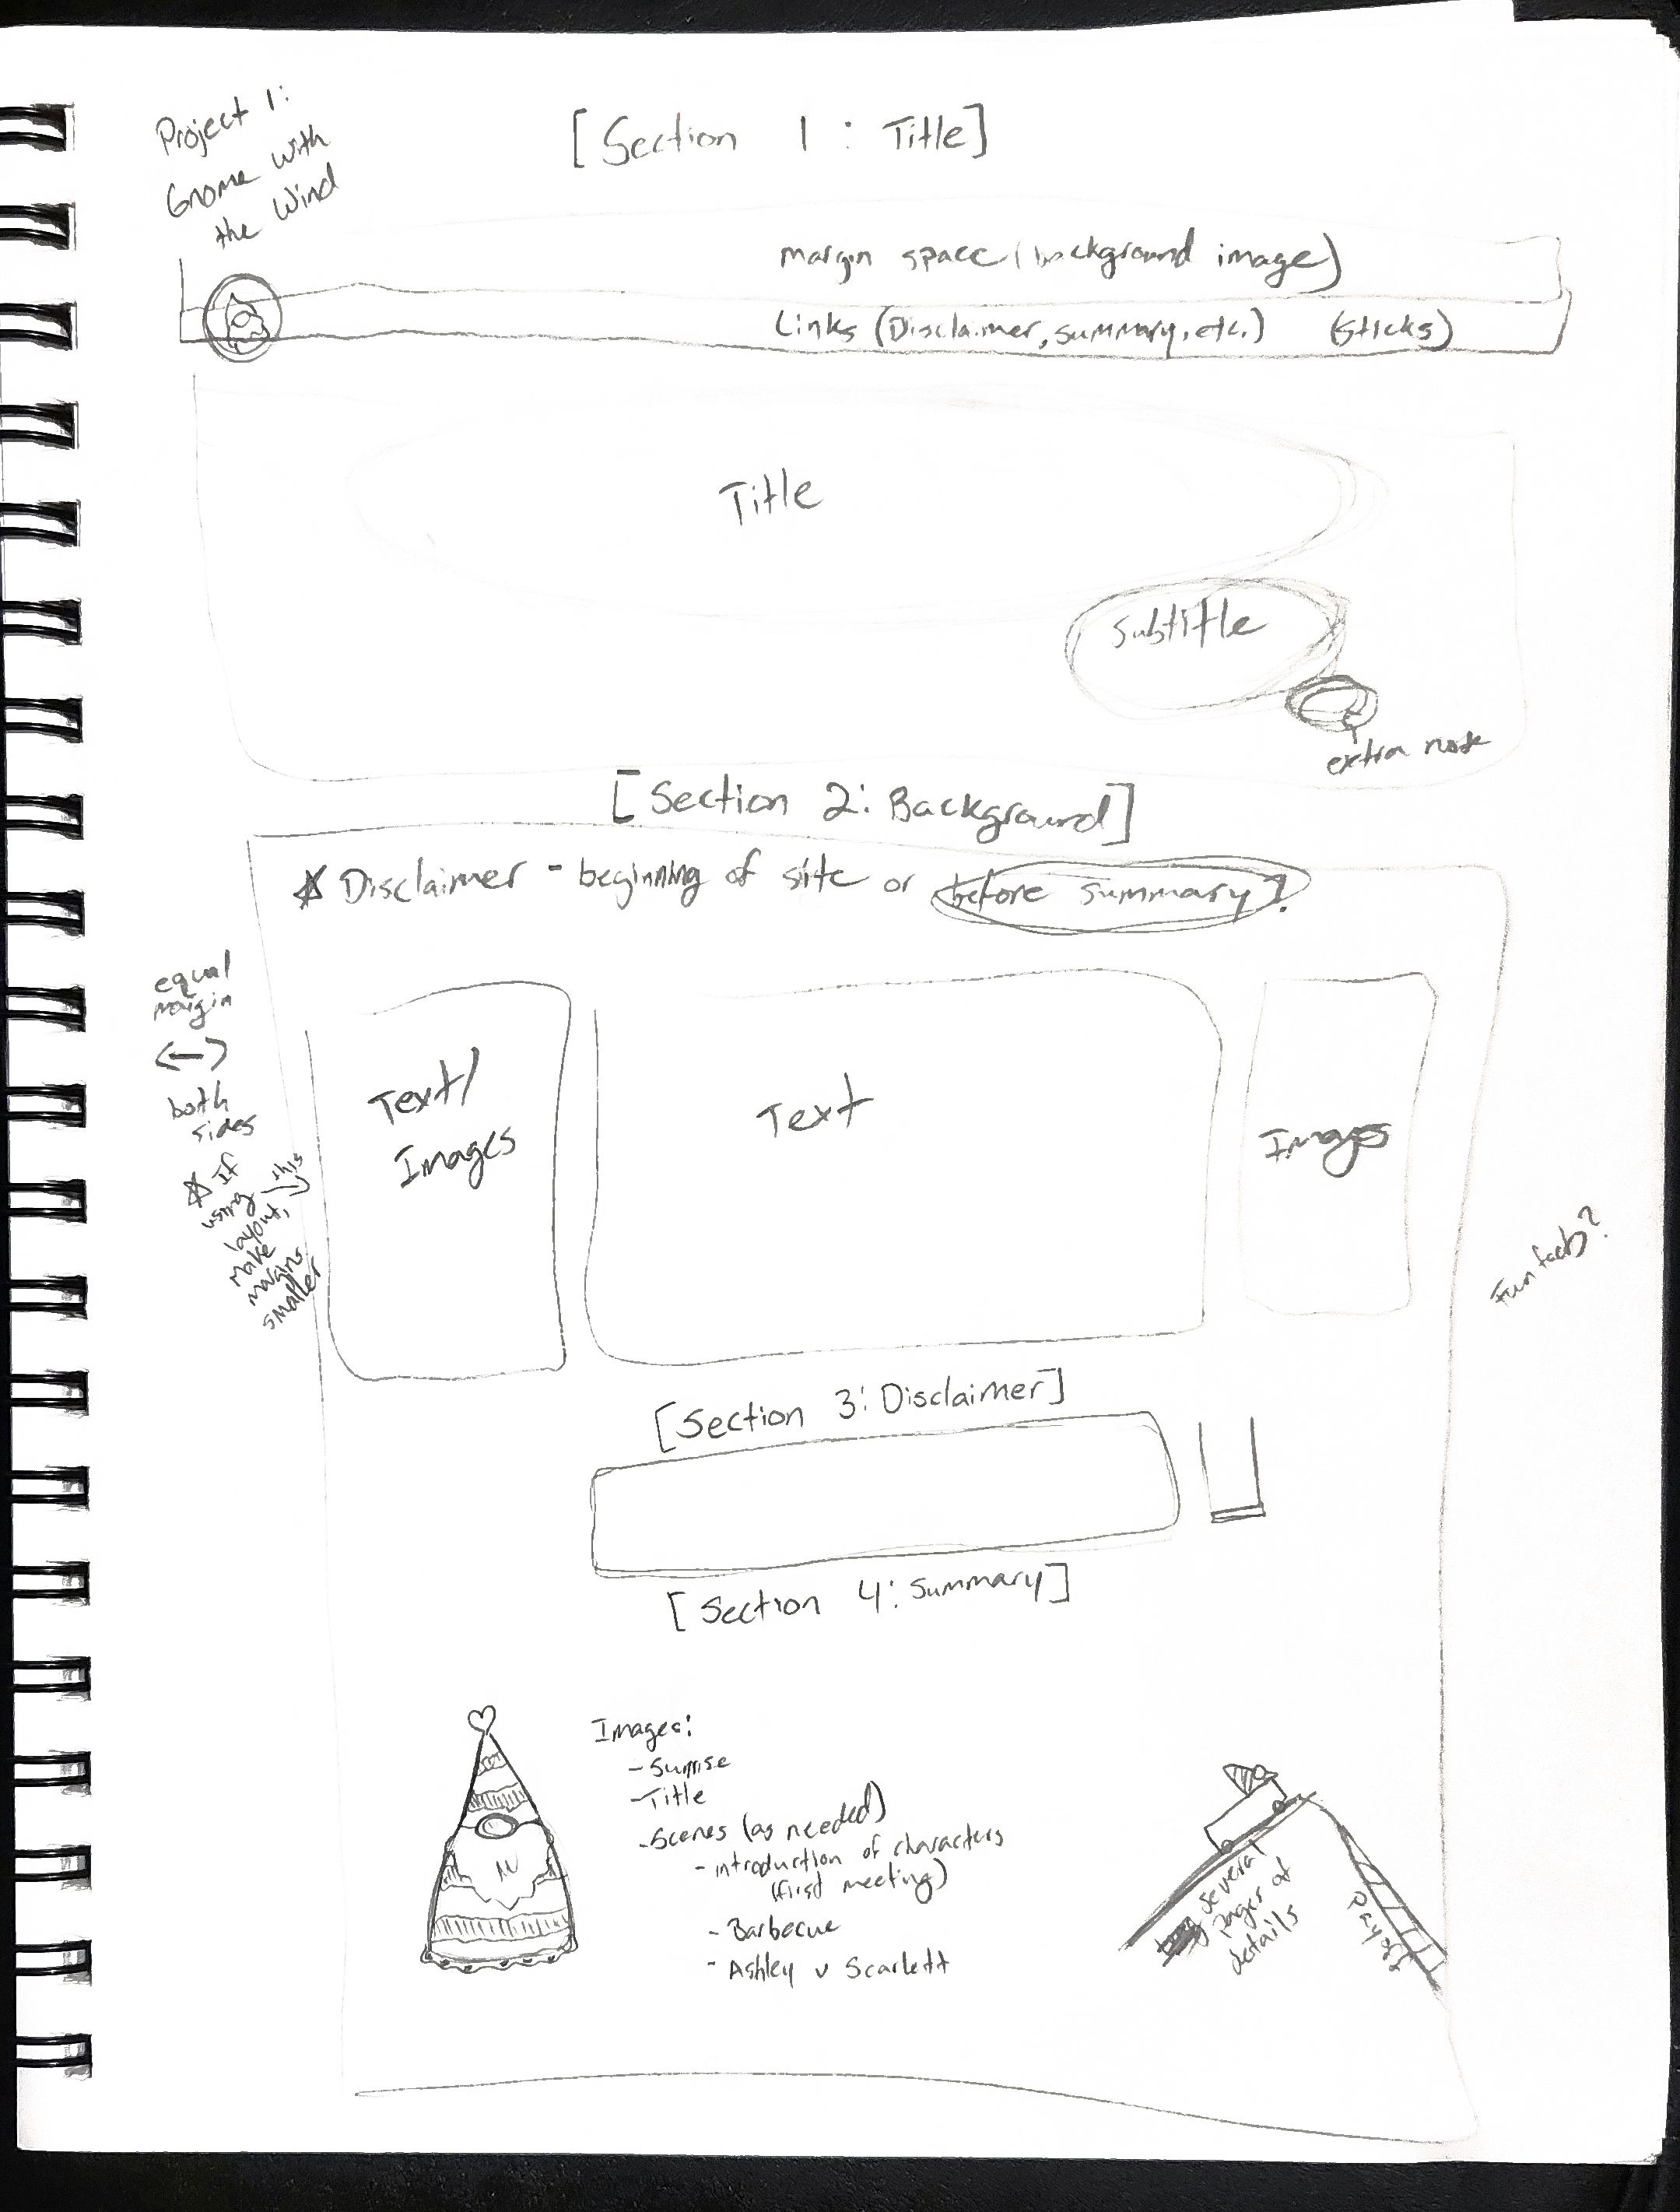 Project 1:
Gnome with
the Wind
[Section 1: Title]
margin space (background image)
Links (Disclaimer, summary, etc.) (sticks)
Title
Subtitle
extra note
[Section 2: Background]
☆ Disclaimer - beginning of site or before summary?
equal
margin
<->
both
sides
☆ If
using this
layout,
make
margins
smaller
Text/
Images
Text
Images
Fun facts?
[Section 3: Disclaimer]
[Section 4: Summary]
Images:
- Sunrise
- Title
- Scenes (as needed)
- introduction of characters
(first meeting)
- Barbecue
- Ashley v Scarlett
several
pages of
details